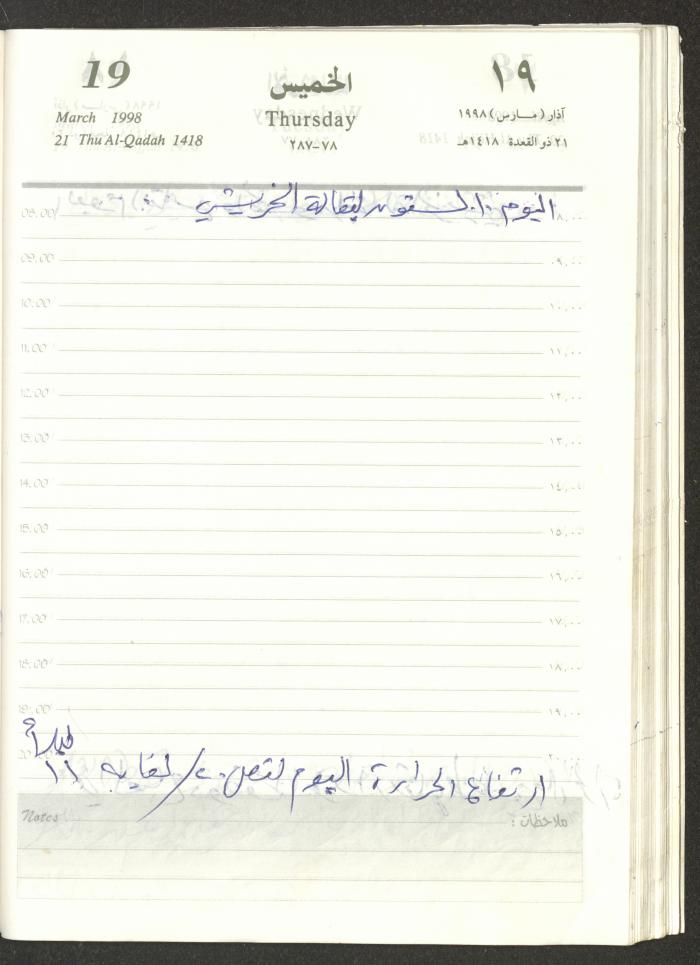 19 الخميس ١٩
March 1998 Thursday آذار (مارس) ١٩٩٨
21 Thu Al-Qadah 1418 ٢٨٧-٧٨ ٢١ ذو القعدة ١٤١٨هـ
اليوم لبقالة الخريشي
08.00 ٨,٠٠
09.00 ٠٩,٠٠
10.00 ١٠,٠٠
11.00 ١١,٠٠
12.00 ١٢,٠٠
13.00 ١٣,٠٠
14.00 ١٤,٠٠
15.00 ١٥,٠٠
16.00 ١٦,٠٠
17.00 ١٧,٠٠
18.00 ١٨,٠٠
19.00 ١٩,٠٠
ارتفاع الحرارة اليوم لتصل لغاية ١١ ليلاً
Notes ملاحظات :